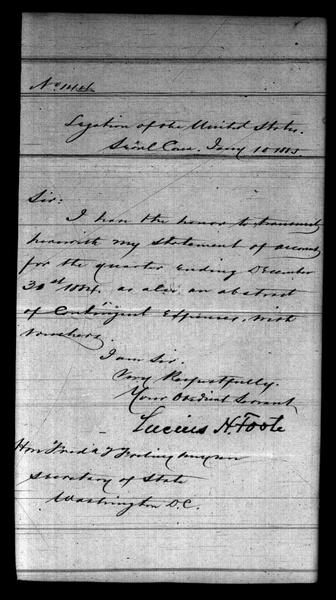 Legation of the United States.
Seoul Corea. Jany 10 1885.
Sir:
I have the honor to transmit
herewith my statement of account
for the quarter ending December
30st 1884, as also an abstract
of Contingent Expenses, with
vouchers.
I am Sir.
Very Respectfully.
Your Obedient Servant
Lucius H. Foote
Hon Fredk T Frelinghuysen
Secretary of State
Washington D.C.